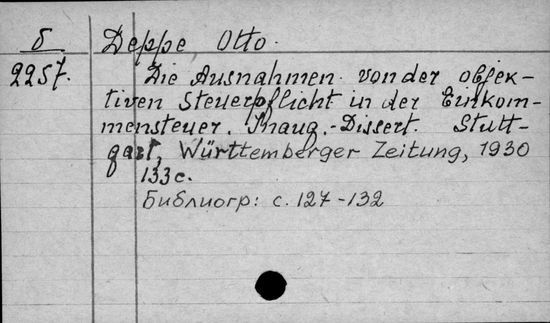 б Deppe Otto.
2257. Die Ausnahmen von der objek-
tiven Steuerpflicht in der Einkom-
mensteuer. Inaug.-Dissert. Stutt-
gart, Württemberger Zeitung, 1930
133 с.
Библиогр: с. 127-132